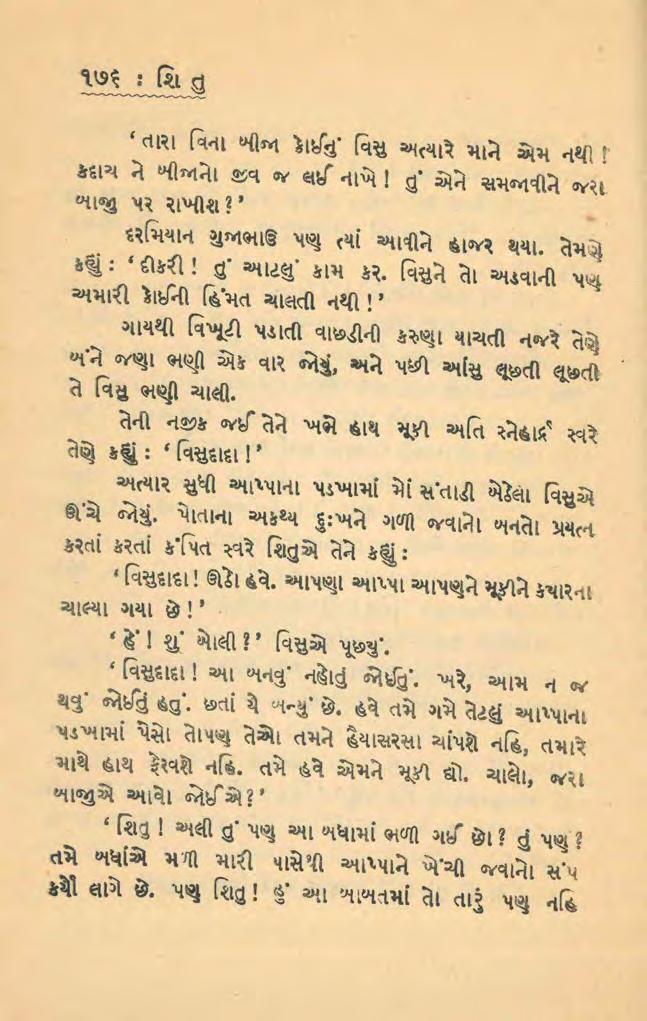 ૧૭૬ : શિ તુ
‘તારા વિના બીજા કોઈનું વિસુ અત્યારે માને એમ નથી !
કદાચ ને બીજાનો જીવ જ લઈ નાખે ! તું એને સમજાવીને જરા
બાજુ પર રાખીશ ?’
દરમિયાન ગુજાભાઉ પણ ત્યાં આવીને હાજર થયા. તેમણે
કહ્યું : ‘દીકરી ! તું આટલું કામ કર. વિસુને તો અડવાની પણ
અમારી કોઈની હિંમત ચાલતી નથી !’
ગાયથી વિખૂટી પડાતી વાછડીની કરુણા યાચતી નજરે તેણે
બંને જણા ભણી એક વાર જોયું, અને પછી આંસુ લૂછતી લૂછતી
તે વિસુ ભણી ચાલી.
તેની નજીક જઈ તેને ખભે હાથ મૂકી અતિ સ્નેહાર્દ્ર સ્વરે
તેણે કહ્યું : ‘વિસુદાદા !’
અત્યાર સુધી આપ્પાના પડખામાં મોં સંતાડી બેઠેલા વિસુએ
ઊંચે જોયું. પોતાના અકથ્ય દુઃખને ગળી જવાનો બનતો પ્રયત્ન
કરતાં કરતાં કંપિત સ્વરે શિતુએ તેને કહ્યું :
‘વિસુદાદા ! ઊઠો હવે. આપણા આપ્પા આપણને મૂકીને કયારના
ચાલ્યા ગયા છે !’
‘હેં ! શું બોલી ?’ વિસુએ પૂછ્યું.
‘વિસુદાદા ! આ બનવું નહોતું જોઈતું. ખરે, આમ ન જ
થવું જોઈતું હતું. છતાં યે બન્યું છે. હવે તમે ગમે તેટલું આપ્પાના
પડખામાં પેસો તોપણ તેઓ તમને હૈયાસરસા ચાંપશે નહિ, તમારે
માથે હાથ ફેરવશે નહિ. તમે હવે એમને મૂકી દ્યો. ચાલો, જરા
બાજુએ આવો જોઈએ ?’
‘શિતુ ! અલી તું પણ આ બધામાં ભળી ગઈ છો ? તું પણ ?
તમે બધાંએ મળી મારી પાસેથી આપ્પાને ખેંચી જવાનો સંપ
કર્યો લાગે છે. પણ શિતુ ! હું આ બાબતમાં તો તારું પણ નહિ